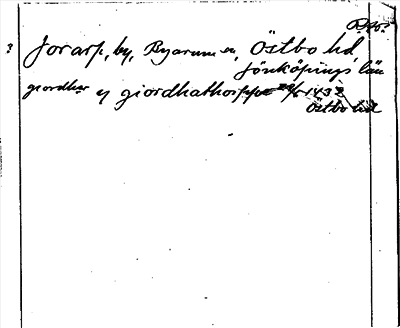 ? Jorarp, by, Byarum sn, Östbo hd,
Jönköpings län
giordhær ij giordhathorppe 29/6 1432
Östbo hd